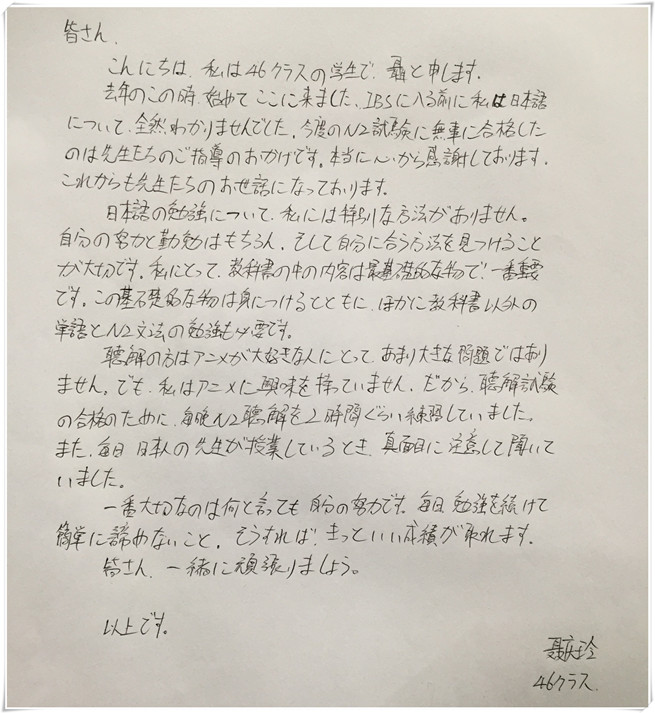 皆さん、
こんにちは、私は46クラスの学生で、聶と申します。
去年のこの時、始めてここに来ました、IBSに入る前に私は日本語
について、全然わかりませんでした。今度のN2試験に無事に合格した
のは先生たちのご指導のおかげです。本当に心から感謝しております。
これからも先生たちのお世話になっております。
日本語の勉強について、私には特別な方法がありません。
自分の努力と勤勉はもちろん、そして自分に合う方法を見つけること
が大切です。私にとって、教科書の中の内容は最基礎的な物で、一番重要
です。この基礎的な物は身につけるとともに、ほかに教科書以外の
単語とN2文法の勉強も必要です。
聴解の方はアニメが大好きな人にとって、あまり大きな問題ではあり
ません。でも、私はアニメに興味を持っていません、だから、聴解試験
の合格のために、毎晩N2聴解を2時間ぐらい練習していました。
また、毎日 日本人の先生が授業しているとき、真面目に注意して聞いて
いました。
一番大切なのは何と言っても 自分の努力です。毎日 勉強を続けて
簡単に諦めないこと。そうすれば、きっといい成績が取れます。
皆さん、一緒に頑張りましょう。
以上です。
聶庆玲
46クラス